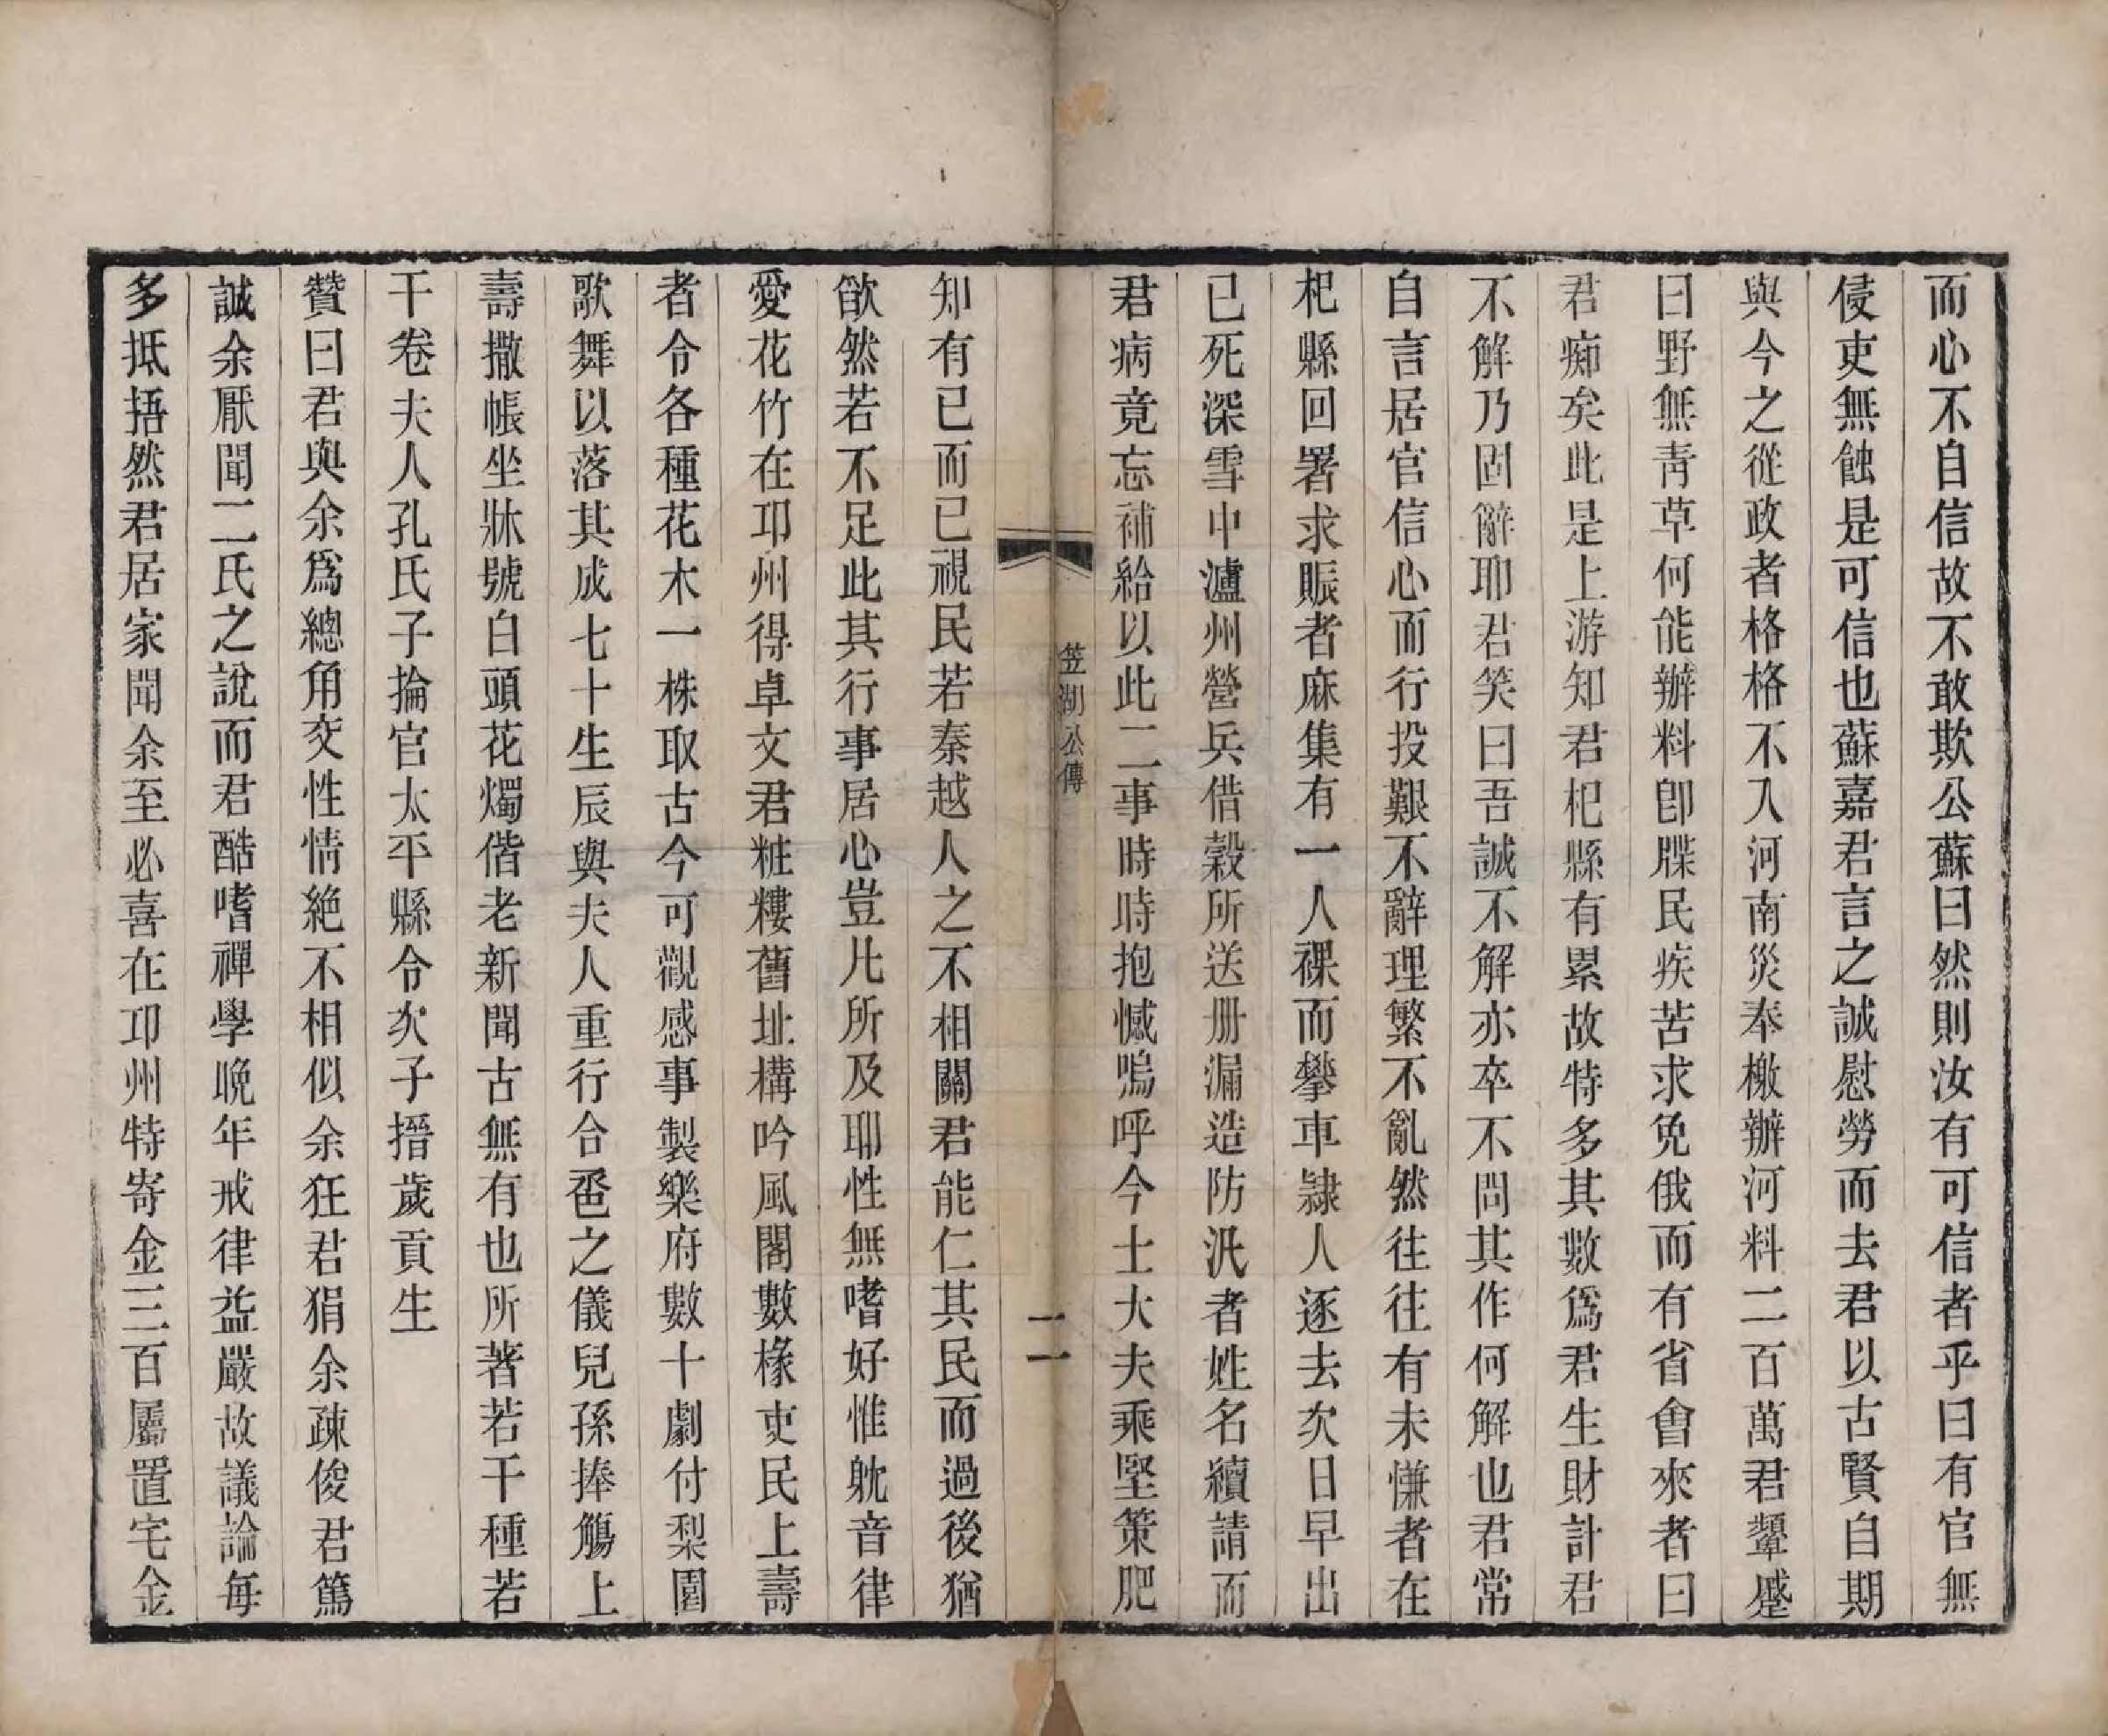 而心不自信故不敢欺公蘇曰然則汝有可信者乎曰有官無
侵吏無蝕是可信也蘇嘉君言之誠慰勞而去君以古賢自期
與今之從政者格格不入河南災奉檄辦河料二百萬君顰蹙
曰野無青草何能辦料卽牒民疾苦求免俄而有省會來者曰
君痴矣此是上游知君杞縣有累故特多其數爲君生財計君
不解乃固辭耶君笑曰吾誠不解亦卒不問其作何解也君常
自言居官信心而行投艱不辭理繁不亂然往往有未慊者在
杞縣回署求賑者麻集有一人裸而攀車隷人逐去次日早出
已死深雪中瀘州營兵借穀所送册漏造防汛者姓名續請而
君病竟忘補給以此二事時時抱憾嗚呼今士大夫乘堅策肥
笠湖公傳
二
知有已而已視民若秦越人之不相關君能仁其民而過後猶
欿然若不足此其行事居心豈凡所及耶性無嗜好惟躭音律
愛花竹在邛州得卓文君粧樓舊址構吟風閣數椽吏民上壽
者令各種花木一株取古今可觀感事製樂府數十劇付梨園
歌舞以落其成七十生辰與夫人重行合巹之儀兒孫捧觴上
壽撒帳坐牀號白頭花燭偕老新聞古無有也所著若干種若
干卷夫人孔氏子掄官太平縣令次子搢歲貢生
贊曰君與余爲總角交性情絕不相似余狂君狷余疎俊君篤
誠余厭聞二氏之說而君酷嗜禪學晚年戒律益嚴故議論每
多抵捂然君居家聞余至必喜在邛州特寄金三百屬置宅金